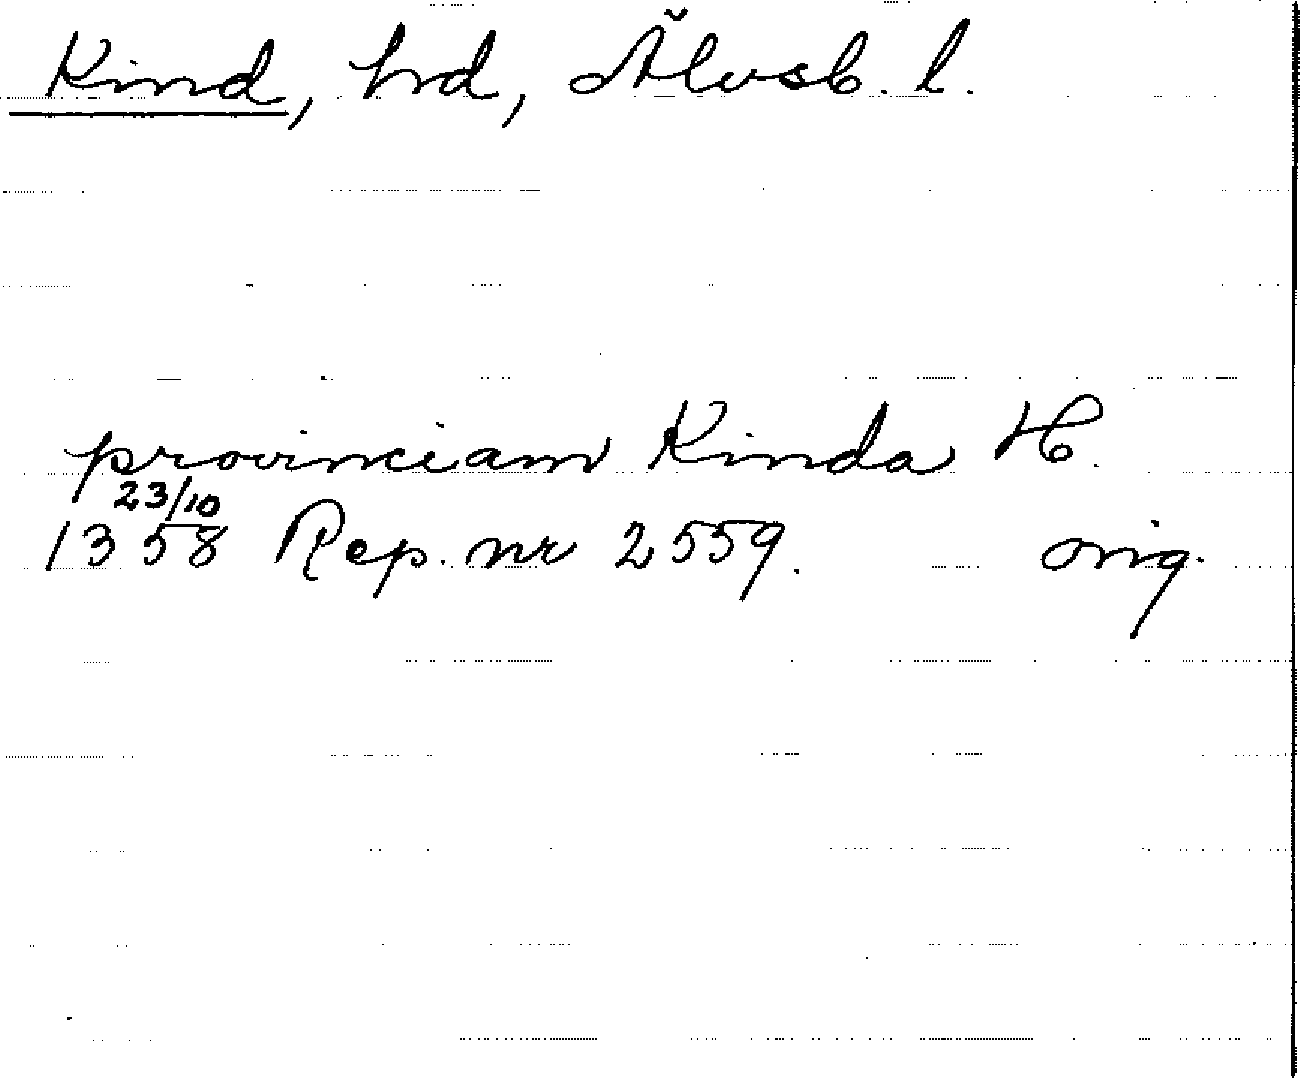 Kind, hd, Älvsb. l.
provinciam Kinda H.
23/10
1358 Rep. nr 2559. orig.